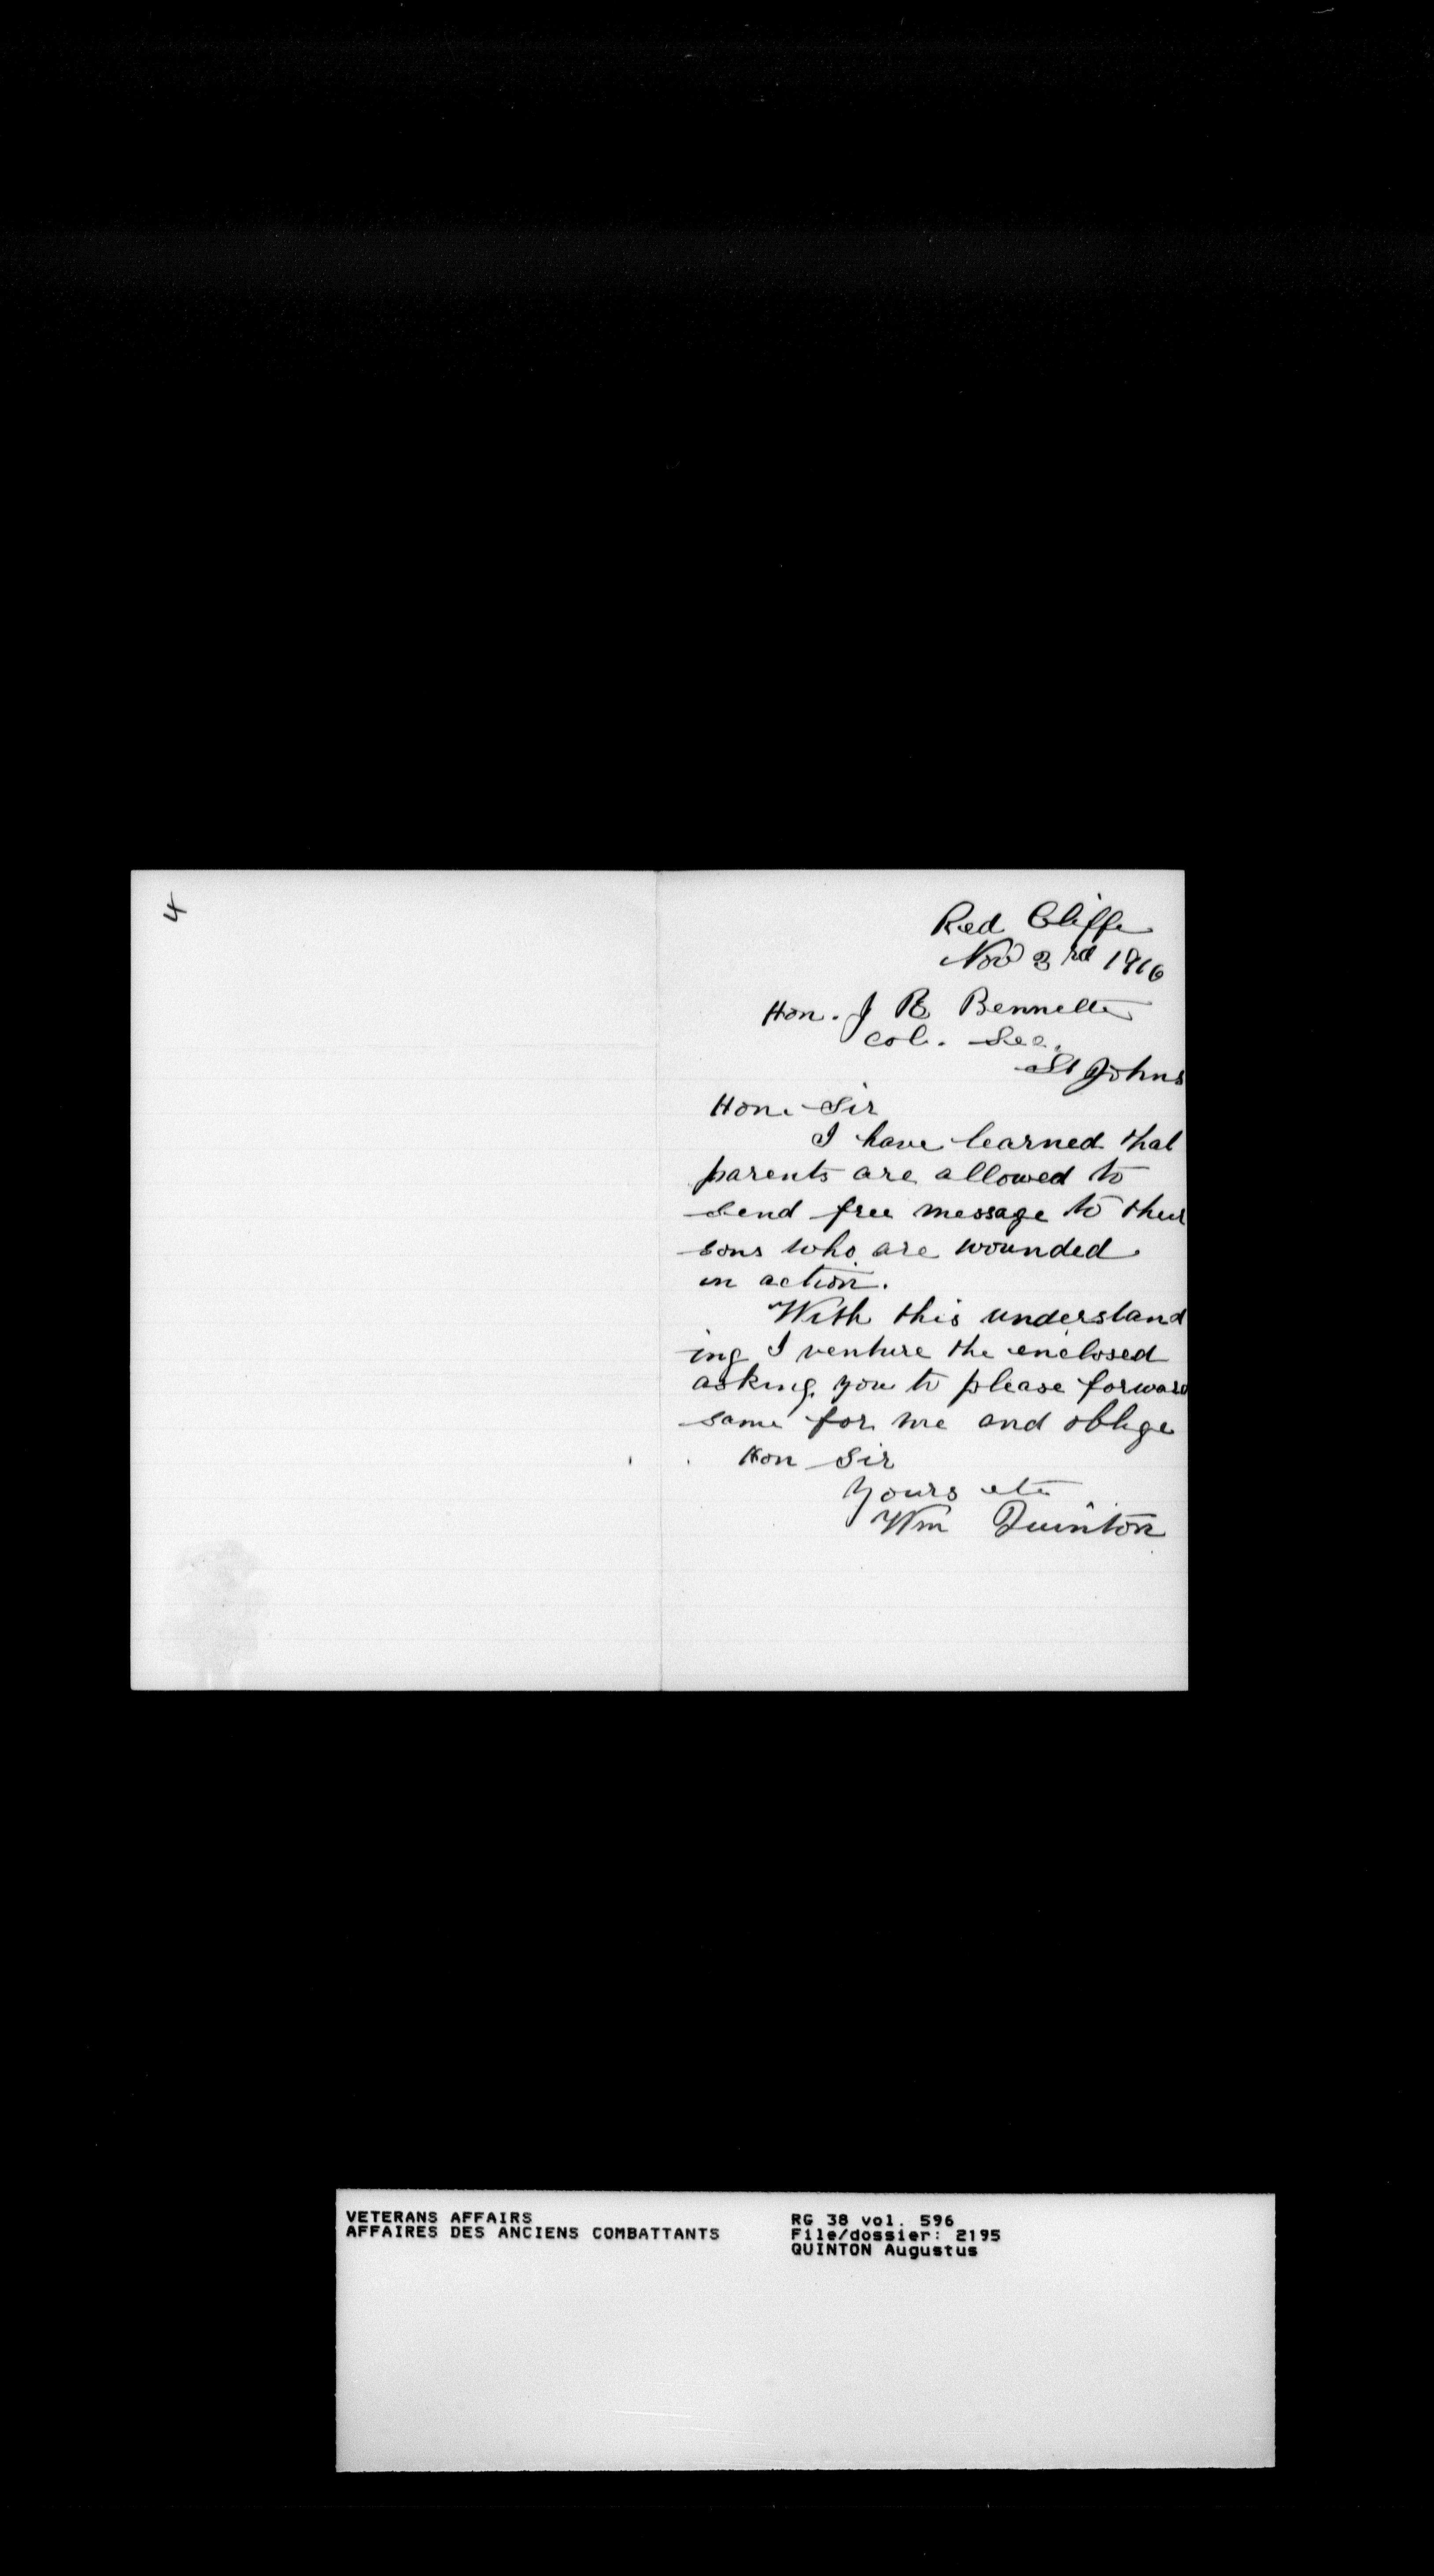 4
Red Cliffe
Nov 3rd 1916
Hon. J R Bennett
Col. Sec.
St Johns
Hon. Sir
I have learned that
parents are allowed to
send free message to their
sons who are wounded
in action.
With this understand
ing I venture the enclosed
asking you to please forward
same for me and oblige
Hon Sir
Yours etc
Wm Quinton
VETERANS AFFAIRS
AFFAIRES DES ANCIENS COMBATTANTS
RG 38 vol. 596
File/dossier: 2195
QUINTON Augustus